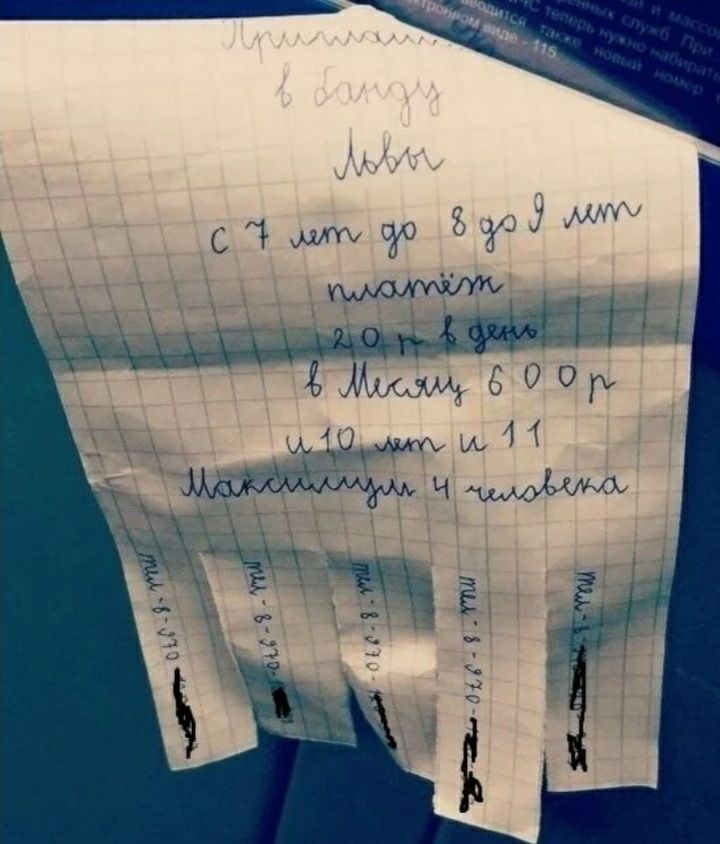 и массо
енных служб. При
МЧС теперь нужно набират
водится также новый номер
ктронном виде - 115
в банду
Львы
с 7 лет до 8 до 9 лет
платёж
20 р в день
в Месяц 600р
и 10 лет и 11
Максимум 4 человека
тел-8-970
тел-8-970-
тел-8-970-
тел-8-970-
тел-8-